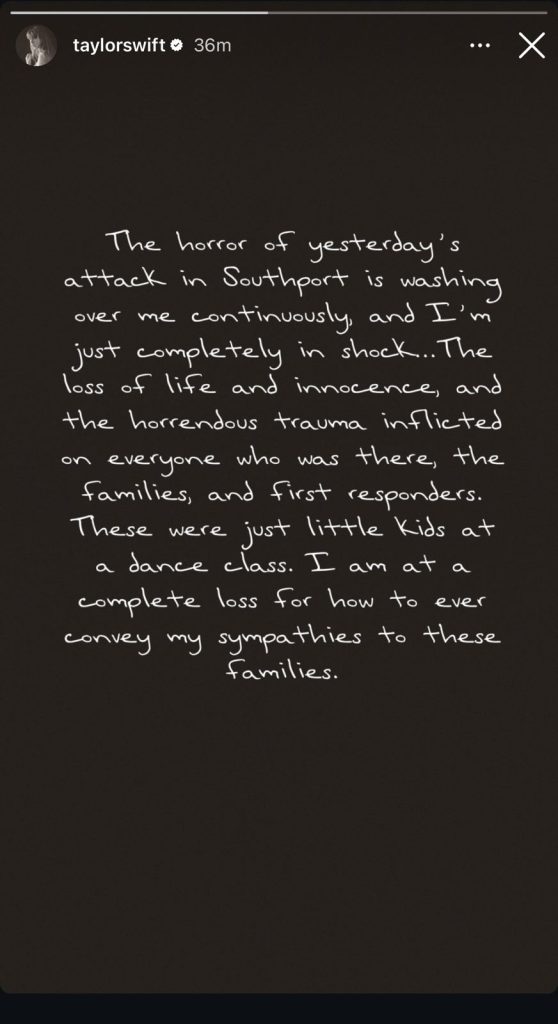 taylorswift 36m
The horror of yesterday's
attack in Southport is washing
over me continuously, and I'm
just completely in shock...The
loss of life and innocence, and
the horrendous trauma inflicted
on everyone who was there, the
families, and first responders.
These were just little kids at
a dance class. I am at a
complete loss for how to ever
convey my sympathies to these
families.